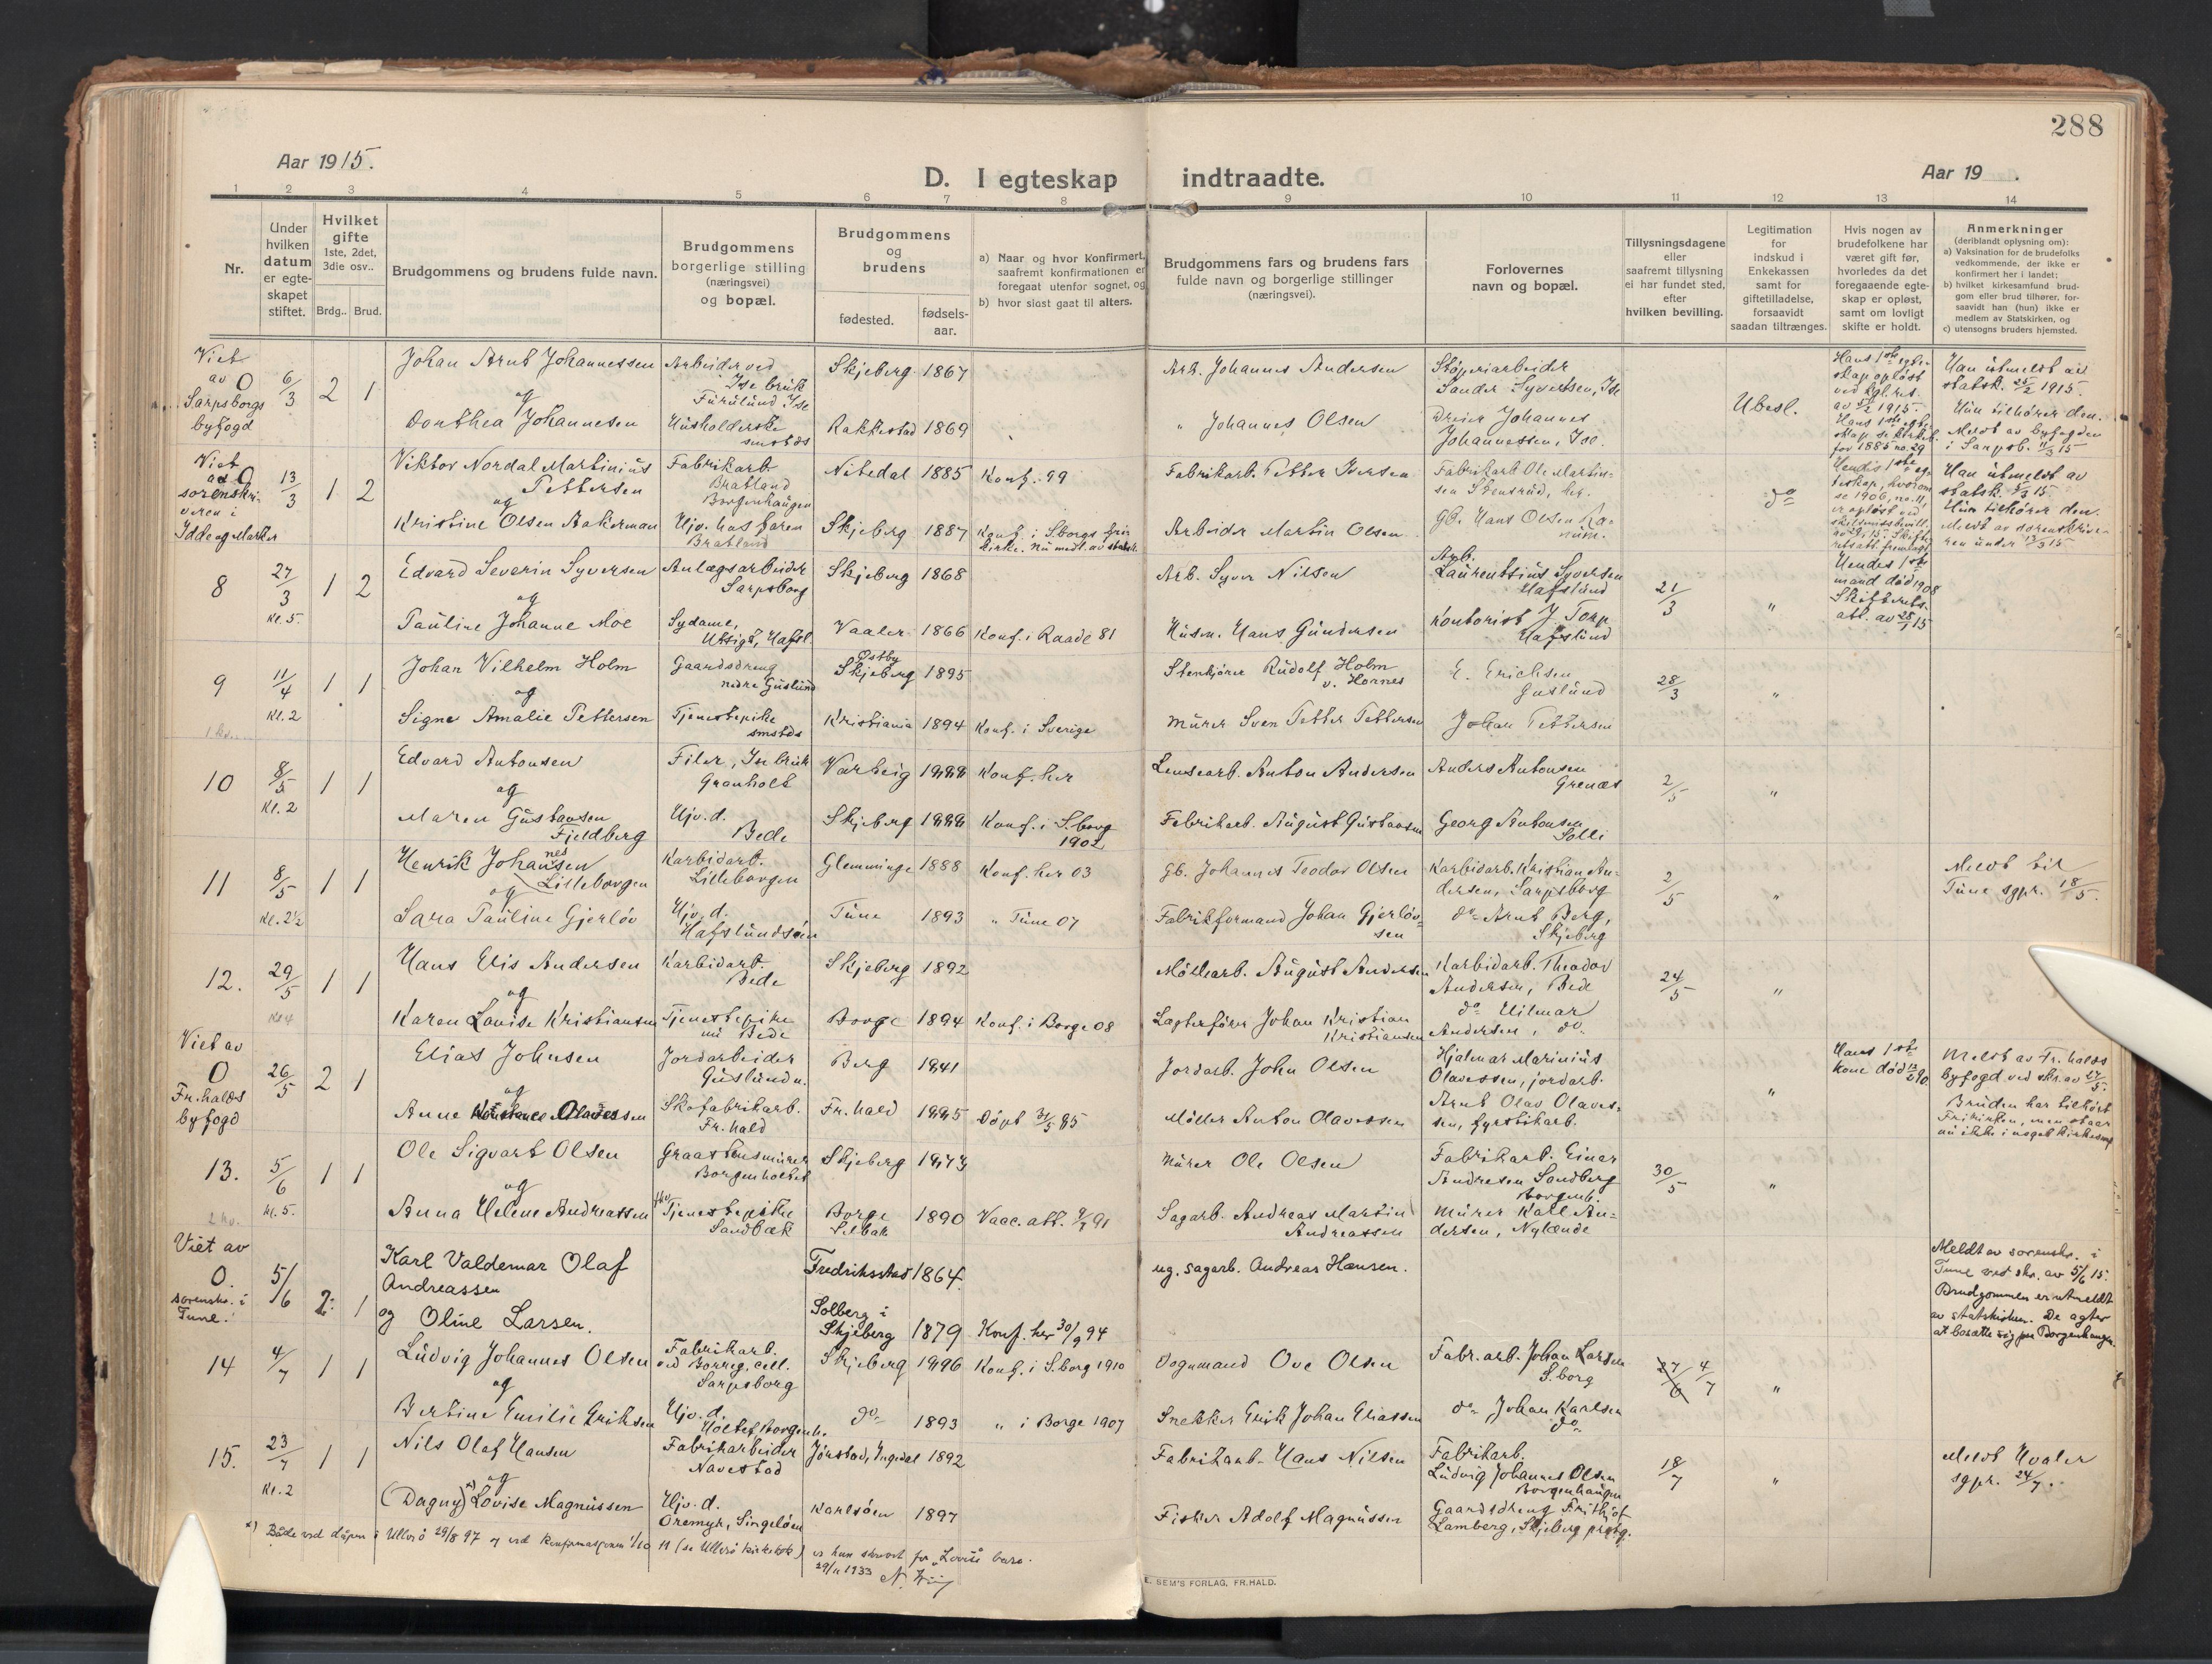 288
Aar 1915.
D. I egteskap indtraadte.
Aar 19 .
1 2 3 4 5 6 7 8 9 10 11 12 13 14
Nr.
Under hvilken datum er egte-skapet stiftet.
Hvilket gifte 1ste, 2det, 3die osv..
Brdg.. Brud.
Brudgommens og brudens fulde navn.
Brudgommens borgerlige stilling (næringsvei) og bopæl.
Brudgommens og brudens
fødested. fødsels-aar.
a) Naar og hvor Konfirmert, saafremt konfirmationen er foregaat utenfor sognet, og
b) hvor sidst gaat til alters.
Brudgommens fars og brudens fars fulde navn og borgerlige stillinger (næringsvei).
Forlovernes navn og bopæl.
Tillysningsdagene eller saafremt tillysning ei har fundet sted, efter hvilken bevilling.
Legitimation for indskud i Enkekassen samt for giftetilladelse, forsaavidt saadan tiltrænges.
Hvis nogen av brudefolkene har været gift før, hvorledes da det foregaaende egte-skap er opløst, samt om lovligt skifte er holdt.
Anmerkninger (deriblandt oplysning om):
a) Vaksination de brudefolks vedkommende, der ikke er konfirmert her i landet;
b) hvilket kirkesamfund brud-gom eller brud tilhører, for-saavidt han (hun) ikke er medlem av Statskirken, og
c) utensogns bruders hjemsted.
Viet av O Sarpsborgs byfogd
6/3 2 1
Johan Arnt Johannessen
Arbeider ved Ise bruk Furulund Ise
Skjeberg 1867
Arb. Johannes Andersen
Støperiarbeider Sander Syvertsen, Ise
Ubesl.
Hans 1ste egte-skap opløst ved kgl. res.
Han utmeldt av statsk. 25/2 1915.
og
Dorthea Johannesen
Husholderske smstds
Rakkestad 1869
" Johannes Olsen
Dreier Johannes Johannessen, Ise.
Hun tilhører den.
Meldt av byfogden i Sarpsb. 11/3 15
Viet av O sorenskri-veren i Idde og Marker
13/3 1 2
Viktor Nordal Martinius Pettersen
Fabrikarb. Bratland Borgenhaugen
Nitedal 1885 Konf. 99
Fabrikarb. Petter Iversen
Fabrikarb. Ole Martin-sen Stensrud, her.
do
Han utmeldt av statsk. 5/3 15.
og
Kristine Olsen Aakerman
Hjv. hos faren Bratland
Skjeberg 1887
Konf. i S.borgs fri-kirke. Nu medl. av statsk.
Arbeider Martin Olsen
Gb. Hans Olsen
Hun tilhører den.
Meldt av sorenskrive-ren under 13/3 15.
8 27/3 Kl. 5. 1 2
Edvard Severin Syversen
Anlægsarbeider Sarpsborg
Skjeberg 1868
Arb. Syver Nilsen
Arb. Laurentsius Syversen Hafslund
21/3 "
Hendes 1ste mand død 1908
Skifterets-att. av 28/1 15
og
Pauline Johanne Moe
Sydame, Utsigt, Hafsl.
Vaaler 1866 Konf. i Raade 81
Husm. Hans Gundersen
Kontorist J. Torp Hafslund
9 11/4 Kl. 2 1 1
Johan Vilhelm Holm
Gaardsdreng nedre Guslund
Østby Skjeberg 1895
Stenkjører Rudolf Holm v. Hornes
E. Erichsen Guslund
28/3 "
og
Signe Amalie Pettersen
Tjenestepike smstds
Kristiania 1894 Konf. i Sverige
Murer Sven Petter Pettersen
Johan Pettersen
10 8/5 Kl. 2 1 1
Edvard Antonsen
Filer, Ise bruk Granholt
Varteig 1888 Konf. her
Lensearb. Anton Andersen
Anders Antonsen Grenæs
2/5 "
og
Maren Gustavsen Fjeldberg
Hjv. d. Bede
Skjeberg 1888 Konf. i S.borg 1902
Fabrikarb. August Gustavsen
Georg Antonsen Solli
11 8/5 Kl. 2½ 1 1
Henrik Johannessen Lilleborgen
Karbidarb. Lilleborgen
Glemminge 1888 Konf. her 03
Gb. Johannes Teodor Olsen
Karbidarb. Kristian An-dersen, Sarpsborg
2/5 "
Meldt til Tune sgpr. 18/5.
og
Sara Pauline Gjerløv
Hjv. d. Hafslundsøen
Tune 1893 " Tune 07
Fabrikformand Johan Gjerløv-sen
do Arnt Berg, Skjeberg
12. 29/5 Kl 4 1 1
Hans Elis Andersen
Karbidarb. Bede
Skjeberg 1892
Møllearb. August Andersen
Karbidarb. Theodor Andersen, Bede
24/5 "
og
Karen Lovise Kristiansen
Tjenestepike nu Bede
Borge 1894 Konf. i Borge 08
Lagterfører Johan Kristian Kristiansen
do Hilmar Andersen, do
Viet av O Fr.halds byfogd
26/5 2 1
Elias Johnsen
Jordarbeider Guslund n.
Berg 1841
Jordarb. John Olsen
Hjalmar Marinius Olavessen, jordarb.
"
Hans 1ste kone død
Meldt av Fr.halds byfogd ved skr. av 27/5.
og
Anne Olavessen
Skofabrikarb. Fr.hald
Fr.hald 1885 Døpt 31/5 85
Møller Anton Olavessen
Arnt Olav Olaves-sen, fyrstikarb.
Bruden har tilhørt Frikirken, men staar nu ikke i noget kirkesamf.
13. 5/6 Kl. 5. 1 1
Ole Sigvart Olsen
Graastensmurer Borgenholtet
Skjeberg 1873
Murer Ole Olsen
Fabrikarb. Einar Andresen Sandberg Borgenh.
30/5 "
og
Anna Helene Andreassen
Tjenestepike Sandbæk
Borge Selbak 1890 Vacc. att. 9/7 91
Sagarb. Andreas Martin Andreassen
Murer Karl An-dersen, Nylænde
Viet av O. sorenskr. i Tune.
5/6 2. 1
Karl Valdemar Olaf Andreassen
Fredriksstad 1864.
ug. sagarb. Andreas Hansen.
Meldt av sorenskr. i Tune ved skr. av 5/6 15.
Brudgommen er utmeldt av statskirken. De agter at bosætte sig paa Borgenhaugen.
og Oline Larsen.
Solberg i Skjeberg 1879 Konf. her 30/9 94
14 4/7 1 1
Ludvig Johannes Olsen
Fabrikarb. ved Borreg. cell. Sarpsborg
Skjeberg 1896 Konf. i S.borg 1910
Vognmand Ove Olsen
Fabr.arb. Johan Larsen S.borg
27/6 4/7 "
og
Bertine Emilie Eriksen
Hjv. d. Holtet, Borgenh.
do 1893 " i Borge 1907
Snekker Erik Johan Eliassen
do Johan Karlsen do
15. 23/7 Kl. 2 1 1
Nils Olaf Hansen
Fabrikarbeider Navestad
Jørstad, Ingedal 1892
Fabrikarb. Hans Nilsen
Fabrikarb. Ludvig Johannes Olsen Borgenhaugen
18/7 "
Meldt Hvaler sgpr. 24/7.
og
(Dagny) x) Lovise Magnussen
Hjv. d. Oremyr, Singeløen
Karlsøen 1897
Fisker Adolf Magnussen
Gaardsdreng Frithjof Lamberg, Skjeberg prgbg.
x) Både ved dåpen i Ullerø 29/8 97 og ved konfirmasjonen 1/10 11 (se Ullerø kirkebok) er hun skrevet for "Lovise" bare.
29/11 1933
E. SEM'S FORLAG, FR.HALD.